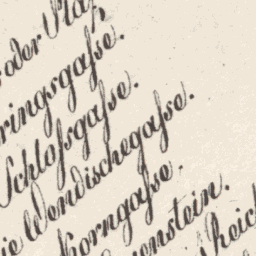 oder Platz
ringsgasse.
Schloßgasse.
ie Wendischegasse.
Korngasse.
enstein.